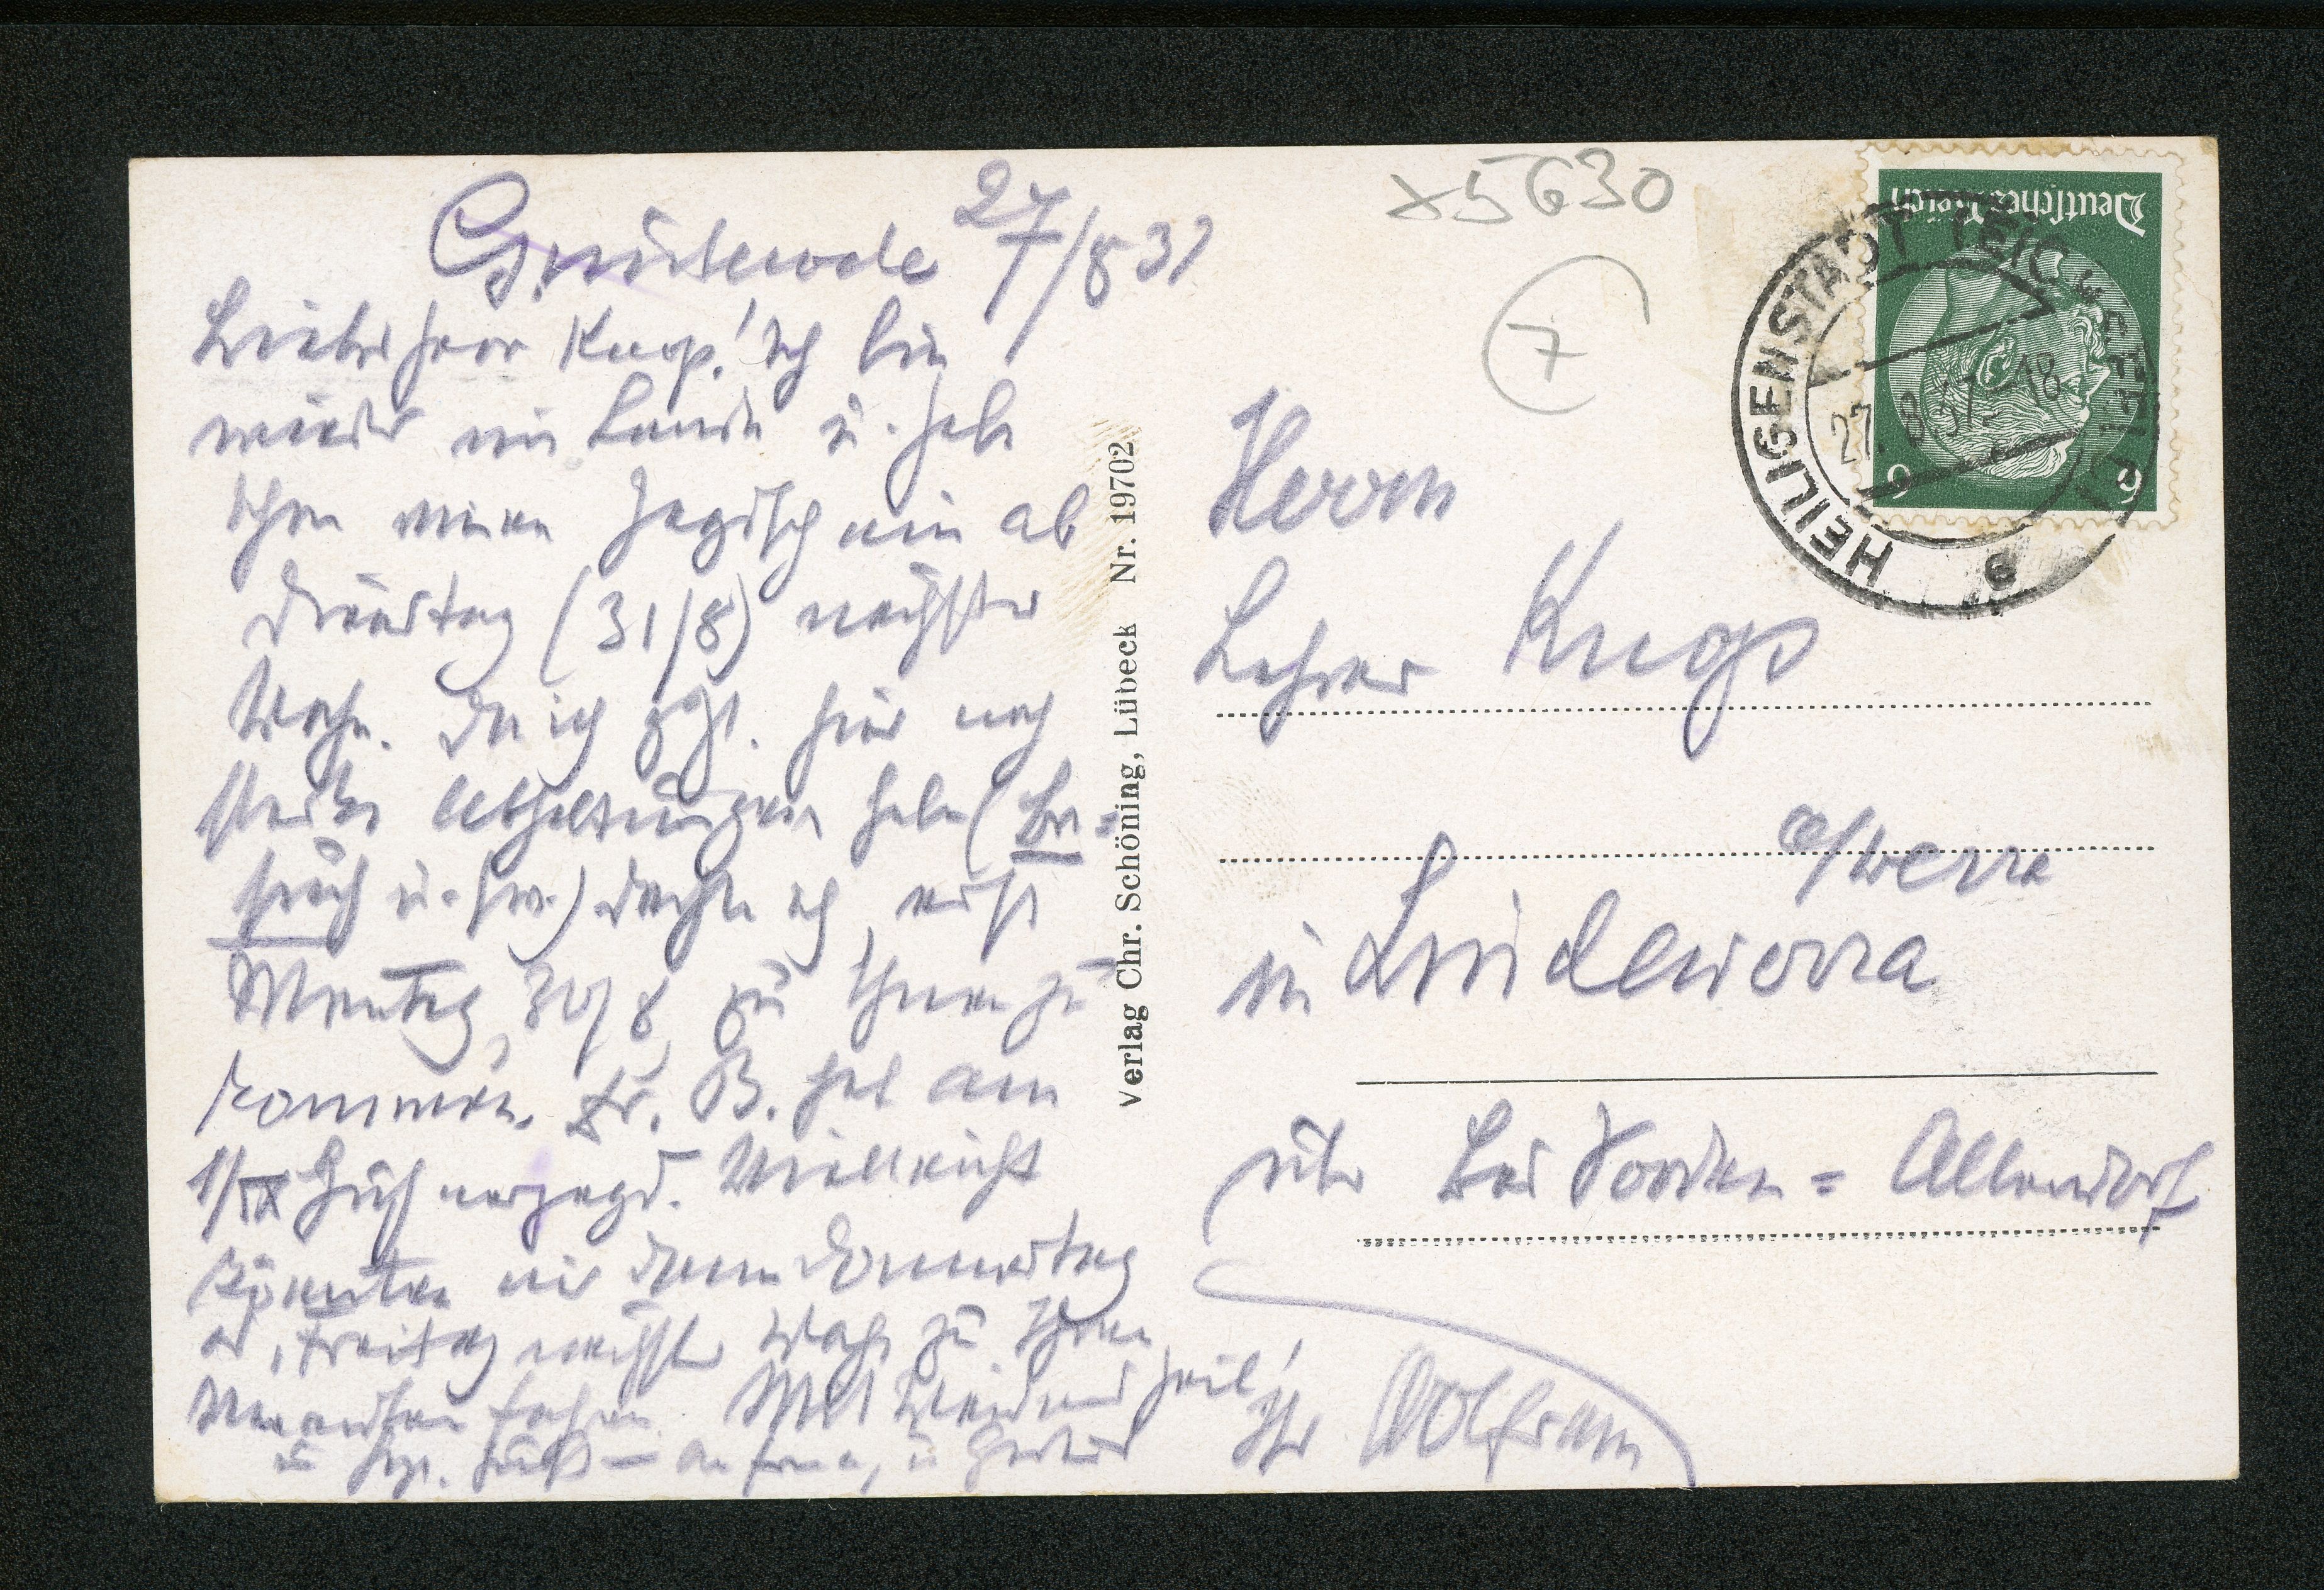 27/8 37
Lieber Herr Knop! Ich bin
wieder im Lande u. habe
Ihren neuen Jagdsch ein ab
Dienstag (31/8) nächster
Woche. Da ich zzt. hier noch
starke Abhaltungen habe (Be=
such u.s.w.) dachte ich, erst
Montag 30/8 zu Ihnen zu
kommen. Fr. B. hat am
1/IX Hühnerjagd. Vielleicht
könnten wir dann Donnerstag
od. Freitag nächster Woche zu Ihren
Verwandten fahren. Mit Weidmannsheil!
u hzl. Gruß - an Frau, u
Ihr Wolfram
Verlag Chr. Schöning, Lübeck Nr. 19702
x5630
7
Deutsches Reich
6 6
HEILIGENSTADT
27. 8. 37 - 18
Herrn
Lehrer Knop
a/Werra
in Lindewerra
über Bad Sooden = Allendorf